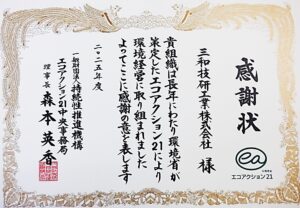 感謝状
三和技研工業株式会社 様
貴組織は長年にわたり環境省が
策定したエコアクション21により
環境経営に取り組まれました
よってここに感謝の意を表します
二〇二五年度
一般財団法人 持続性推進機構
エコアクション21中央事務局
理事長 森本英香
ea
エコアクション21